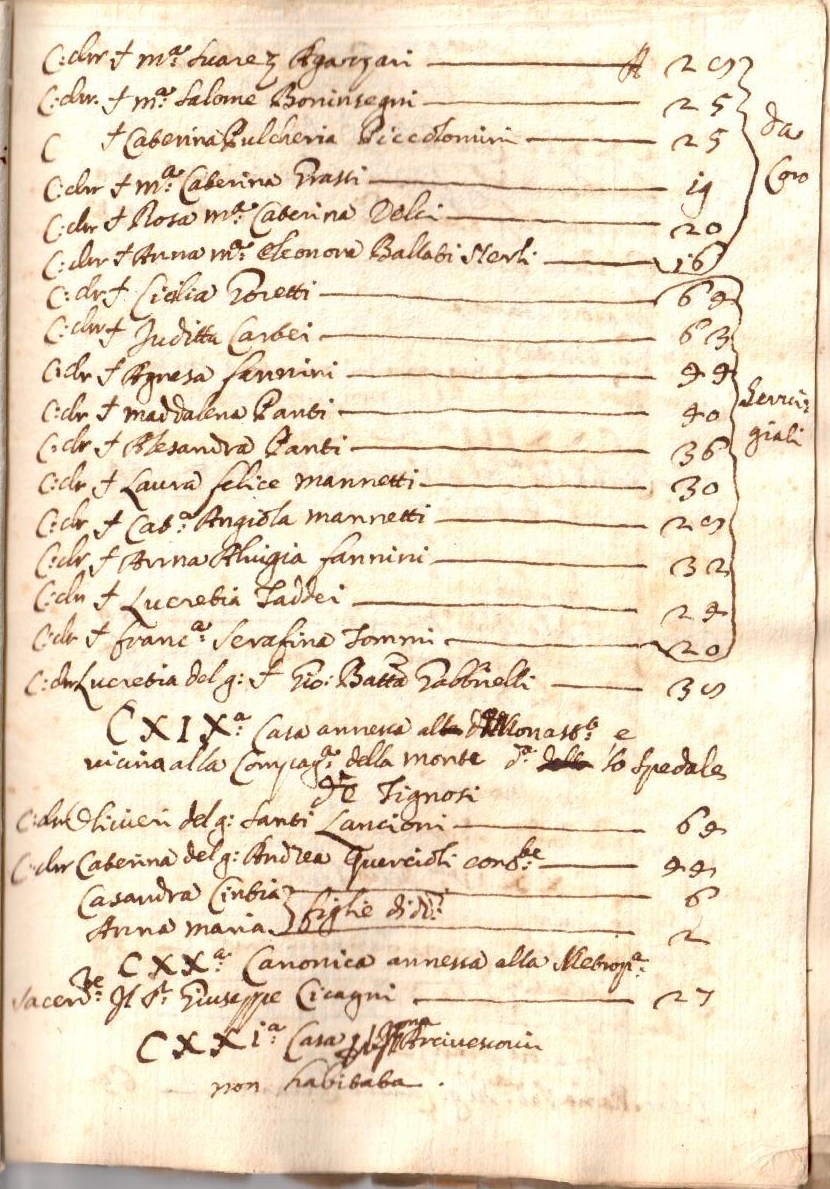 C: chr † m.ª Suarez Agazzari — 29
C: chr. † m.ª Salome Boninsegni — 25
C † Caterina Pulcheria Piccolomini — 25
da Coro
C: chr † m.ª Caterina Grassi — 19
C: chr † Rosa m.ª Caterina Delci — 20
C: chr † Anna m.ª Eleonora Ballati Nerli — 16
C: chr † Cicilia Poretti — 64
C: chr † Juditta Carlei — 63
C: chr † Agnesa fannini — 44
C: chr † maddalena Panti — 40
Servigiali
C: chr † Alesandra Panti — 36
C: chr † Laura felice mannetti — 30
C: chr † Cat.ª Angiola mannetti — 29
C: chr † Anna Aluigia fannini — 32
C: chr † Lucretia Taddei — 24
C: chr † franc.ª Serafina Tommi — 20
C: chr Lucretia del g: † Gio: Batta Gabbrielli — 39
CXIX.ª Casa annessa al d.º Monast.º e
vicina alla Compag.ª della morte d.ª lo Spedale
de Tignosi
C: chr Oliveri del g: Santi Lancioni — 64
C: chr Caterina del g: Andrea Quercioli cons.te — 44
Casandra Cintia — 6
figlie di d.i
Anna maria — 2
CXX.ª Canonica annessa alla Metrop.ª
Sacerd.te Il S.r Giuseppe Cicagni — 27
CXXI.ª Casa Arcivescovi
non habitata.